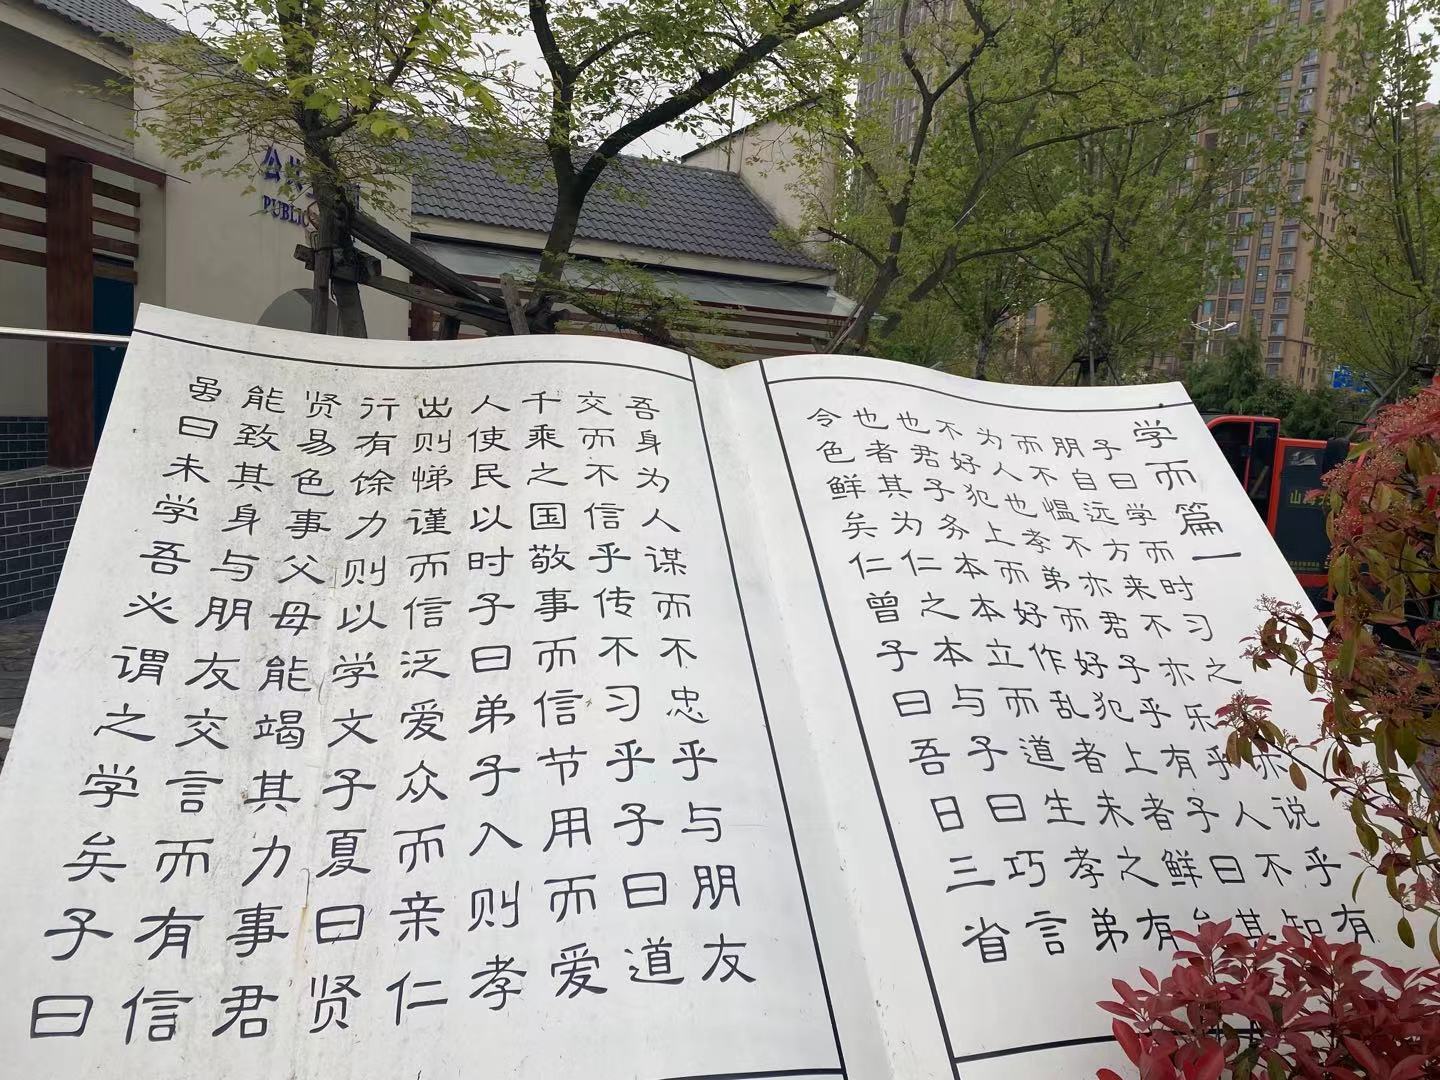 学而篇一
子曰学而时习之亦说乎有
朋自远方来不亦乐乎人不知
而不愠不亦君子乎有子曰其
为人也孝弟而好犯上者鲜矣
不好犯上而好作乱者未之有
也君子务本本立而道生孝弟
也者其为仁之本与子曰巧言
令色鲜矣仁曾子曰吾日三省
吾身为人谋而不忠乎与朋友
交而不信乎传不习乎子曰道
千乘之国敬事而信节用而爱
人使民以时子曰弟子入则孝
出则悌谨而信泛爱众而亲仁
行有馀力则以学文子夏曰贤
贤易色事父母能竭其力事君
能致其身与朋友交言而有信
虽曰未学吾必谓之学矣子曰
公共
PUBLIC